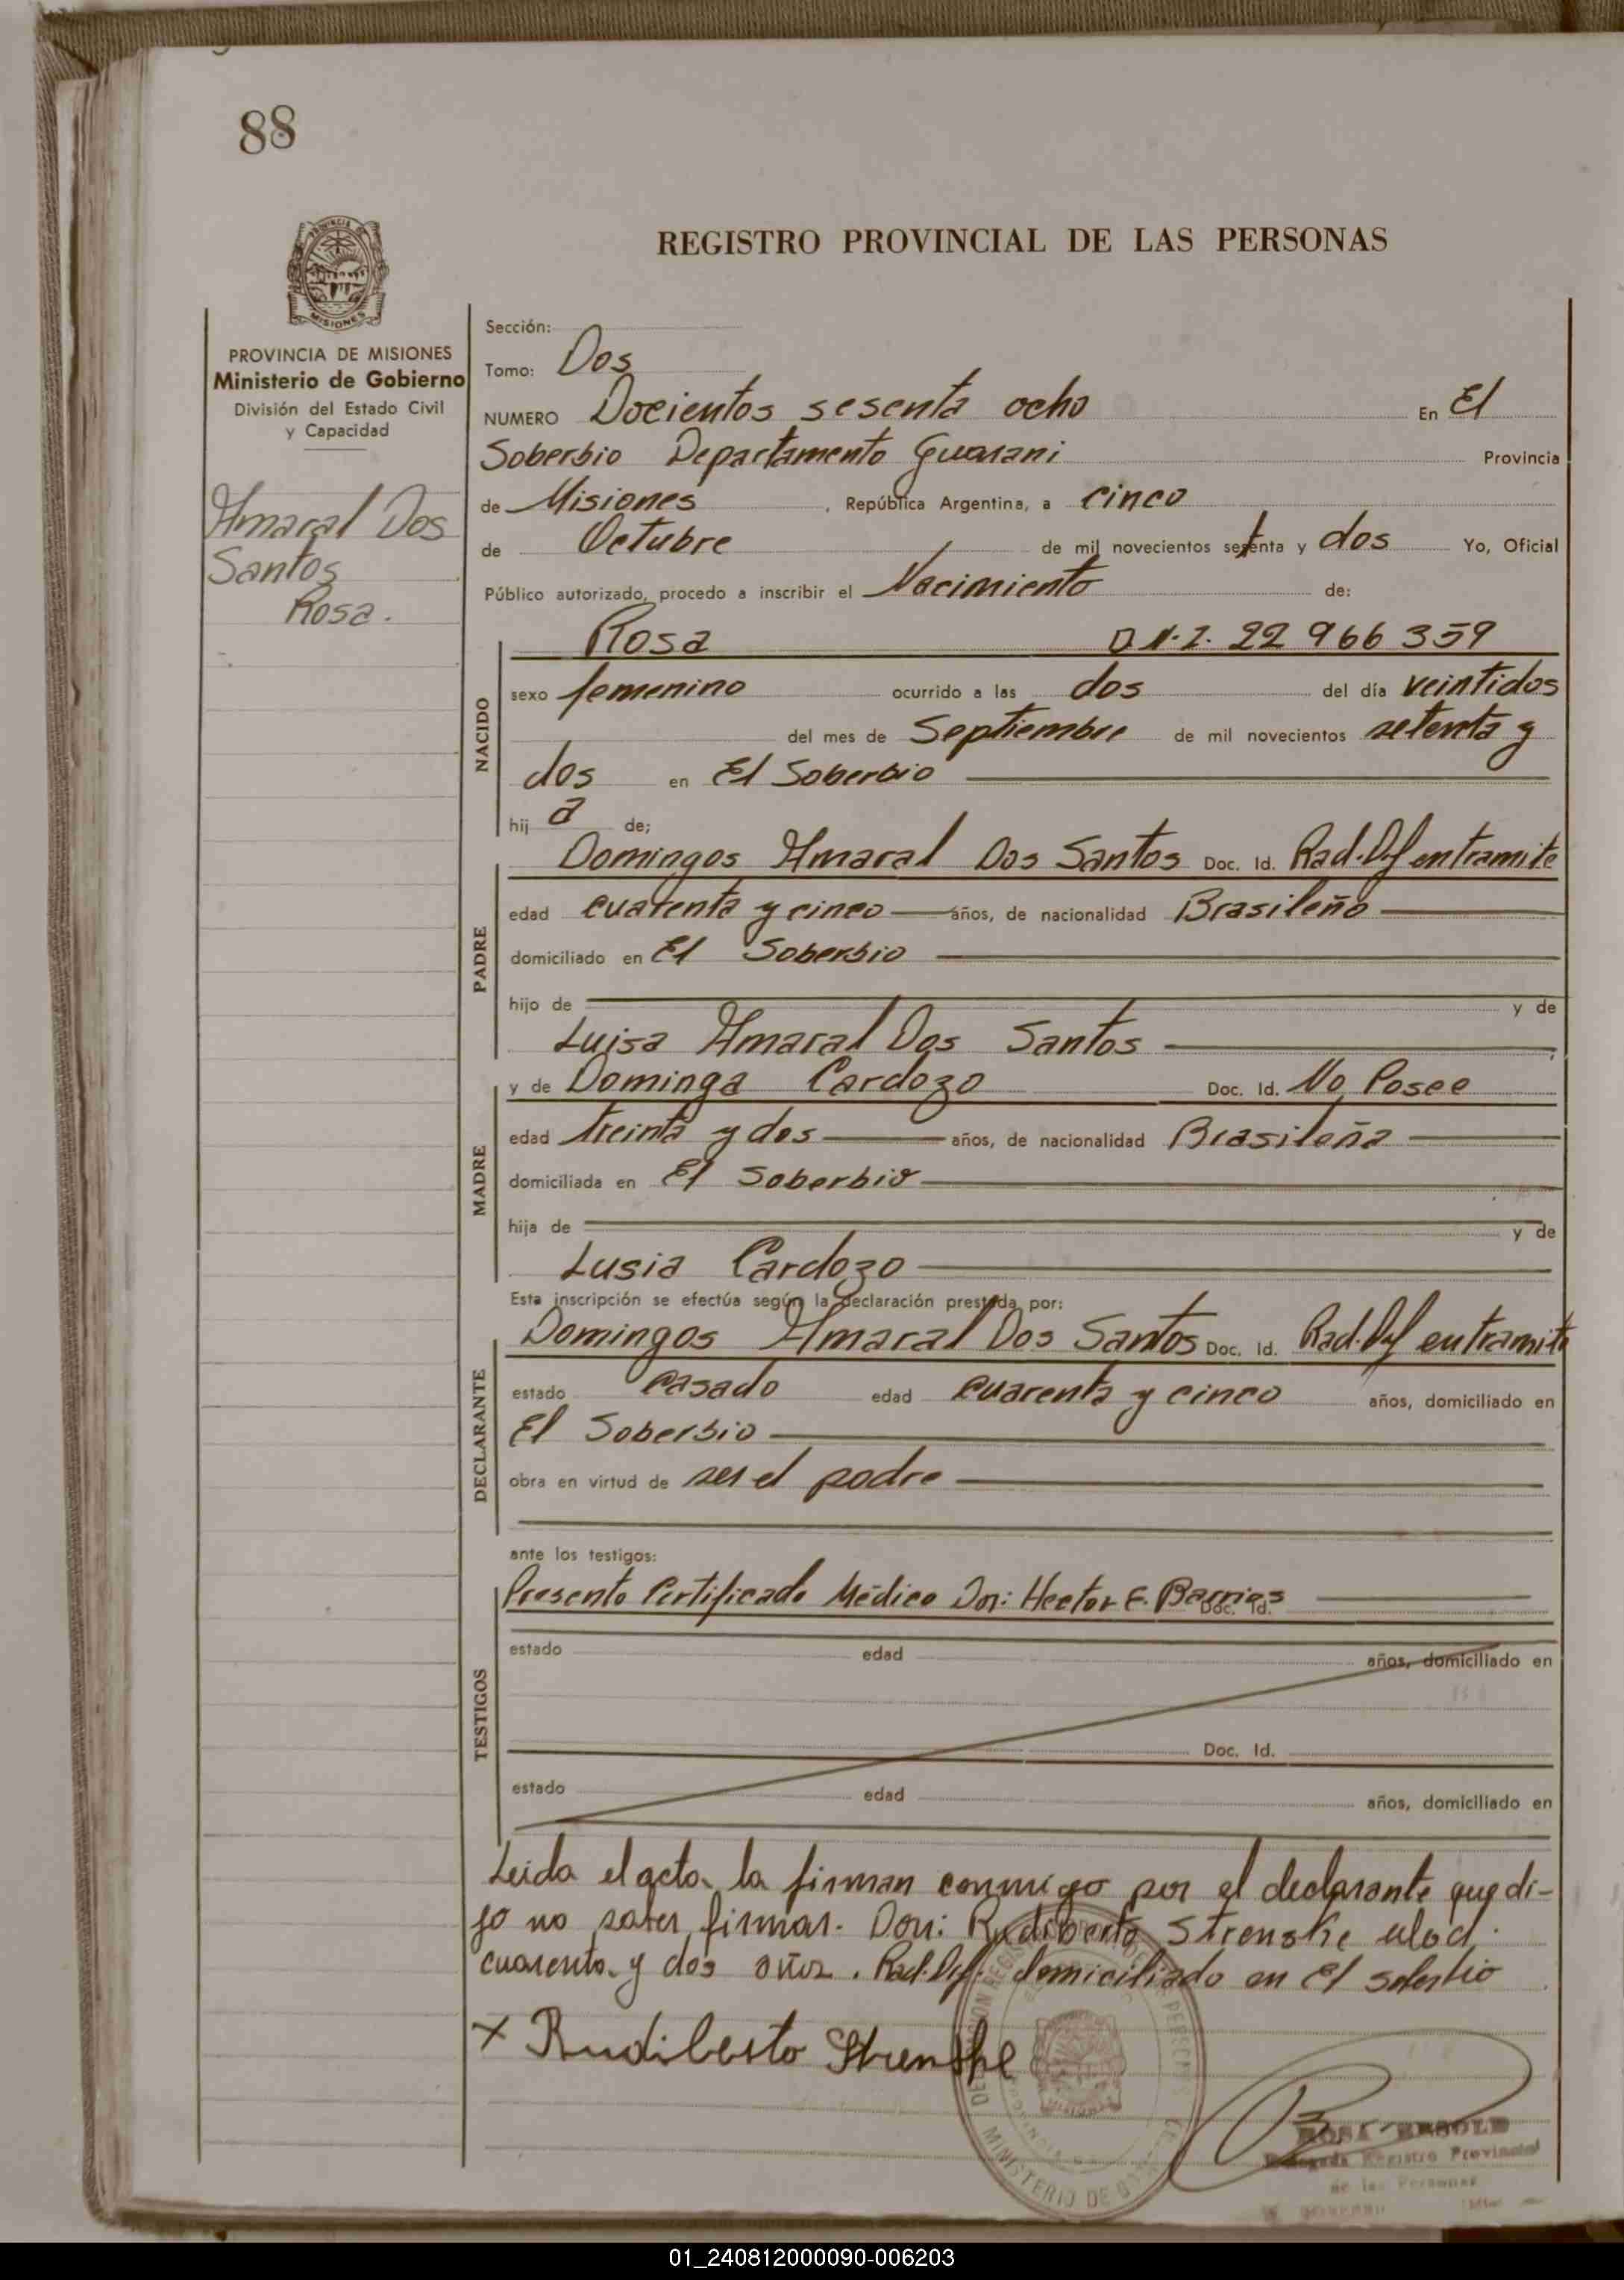 88
REGISTRO PROVINCIAL DE LAS PERSONAS
PROVINCIA DE MISIONES
Ministerio de Gobierno
División del Estado Civil
y Capacidad
Amaral Dos
Santos
Rosa.
Sección:
Tomo: Dos
NUMERO Docientos sesenta ocho En El
Soberbio Departamento Guarani Provincia
de Misiones, República Argentina, a cinco
de Octubre de mil novecientos setenta y dos Yo, Oficial
Público autorizado, procedo a inscribir el Nacimiento de:
Rosa D.N.I. 22 966 359
NACIDO
sexo femenino ocurrido a las dos del día veintidos
del mes de Septiembre de mil novecientos setenta y
dos en El Soberbio
hij a de;
Domingos Amaral Dos Santos Doc. Id. Rad. Def en tramite
PADRE
edad cuarenta y cinco años, de nacionalidad Brasileño
domiciliado en El Soberbio
hijo de y de
Luisa Amaral Dos Santos
y de Dominga Cardozo Doc. Id. No Posee
MADRE
edad treinta y dos años, de nacionalidad Brasileña
domiciliada en El Soberbio
hija de y de
Lusia Cardozo
Esta inscripción se efectúa según la declaración prestada por:
Domingos Amaral Dos Santos Doc. Id. Rad. Def en tramite
DECLARANTE
estado casado edad cuarenta y cinco años, domiciliado en
El Soberbio
obra en virtud de ser el padre
ante los testigos:
Presento Certificado Médico Don: Hector E. Barrios Doc. Id.
TESTIGOS
estado edad años, domiciliado en
Doc. Id.
estado edad años, domiciliado en
Leida el acta, la firman conmigo por el declarante que di-
jo no saber firmar. Don: Rudiberto Strenske edad
cuarenta y dos años. Rad. Def: domiciliado en El Soberbio
x Rudiberto Strenske
MINISTERIO DE
ROSA
Registro Provincial
de las Personas
01_240812000090-006203